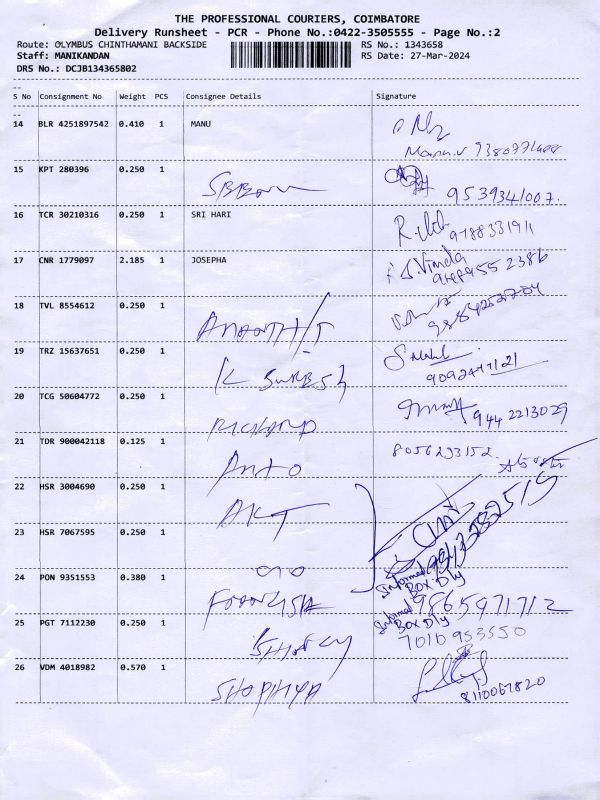 THE PROFESSIONAL COURIERS, COIMBATORE
Delivery Runsheet - PCR - Phone No.:0422-3505555 - Page No.:2
Route: OLYMBUS CHINTHAMANI BACKSIDE RS No.: 1343658
Staff: MANIKANDAN RS Date: 27-Mar-2024
DRS No.: DCJB134365802
S No Consignment No Weight PCS Consignee Details Signature
14 BLR 4251897542 0.410 1 MANU
15 KPT 280396 0.250 1 9539341007.
16 TCR 30210316 0.250 1 SRI HARI 9788331911
17 CNR 1779097 2.185 1 JOSEPHA J.Vimela
18 TVL 8554612 0.250 1 ANANTHI T
19 TRZ 15637651 0.250 1 K SURESH
20 TCG 50604772 0.250 1 RICHARD 944 2213029
21 TDR 900042118 0.125 1 ANTO 8056293152
22 HSR 3004690 0.250 1 AKT
23 HSR 7067595 0.250 1
Informed
BOX Dly
24 PON 9351553 0.380 1 9865971712
Informed
BOX Dly
25 PGT 7112230 0.250 1 7010953550
26 VDM 4018982 0.570 1 SHOPHIYA 8110067820